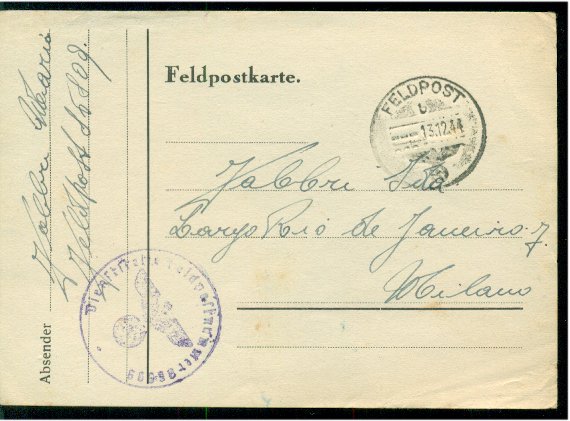 Feldpostkarte.
FELDPOST
b
13.12.44
Fabbri Ida
Largo Rio de Janeiro 7.
Milano
Absender Fabbri
Feldpost
Dienststelle Feldpostnummer